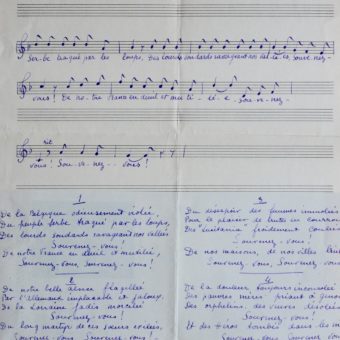 Ser-be traqué par les loups, Des lourds soudards ravageant nos val-lé-es, Souve-nez-
vous! De no-tre France en deuil et mu-ti-lé-e. Sou-ve-nez-
rit
vous! Sou-ve-nez--vous!
1
De la Belgique odieusement violée,
Du peuple serbe traqué par les loups,
Des lourds soudards ravageant nos vallées
Souvenez-vous!
De notre France en deuil et mutilée,
Souvenez-vous, Souvenez-vous!
2
De notre belle Alsace flagellée
Par l'Allemand implacable et jaloux,
De la Lorraine jadis mortifiée
Souvenez-vous!
Du long martyre de ces sœurs exilées,
Souvenez-vous, Souvenez-vous!
3
Du désespoir des femmes immolées
Pour le plaisir de brutes en courroux
Des "Lusitania" froidement
Souvenez-vous!
De nos maisons, de nos villes
Souvenez-vous, Souvenez-vous
4
De la douleur toujours
Des pauvres mères priant à
Des orphelins, des veuves désolées
Souvenez-vous!
Et des héros tombés dans les
Souvenez-vous, Souvenez-vous